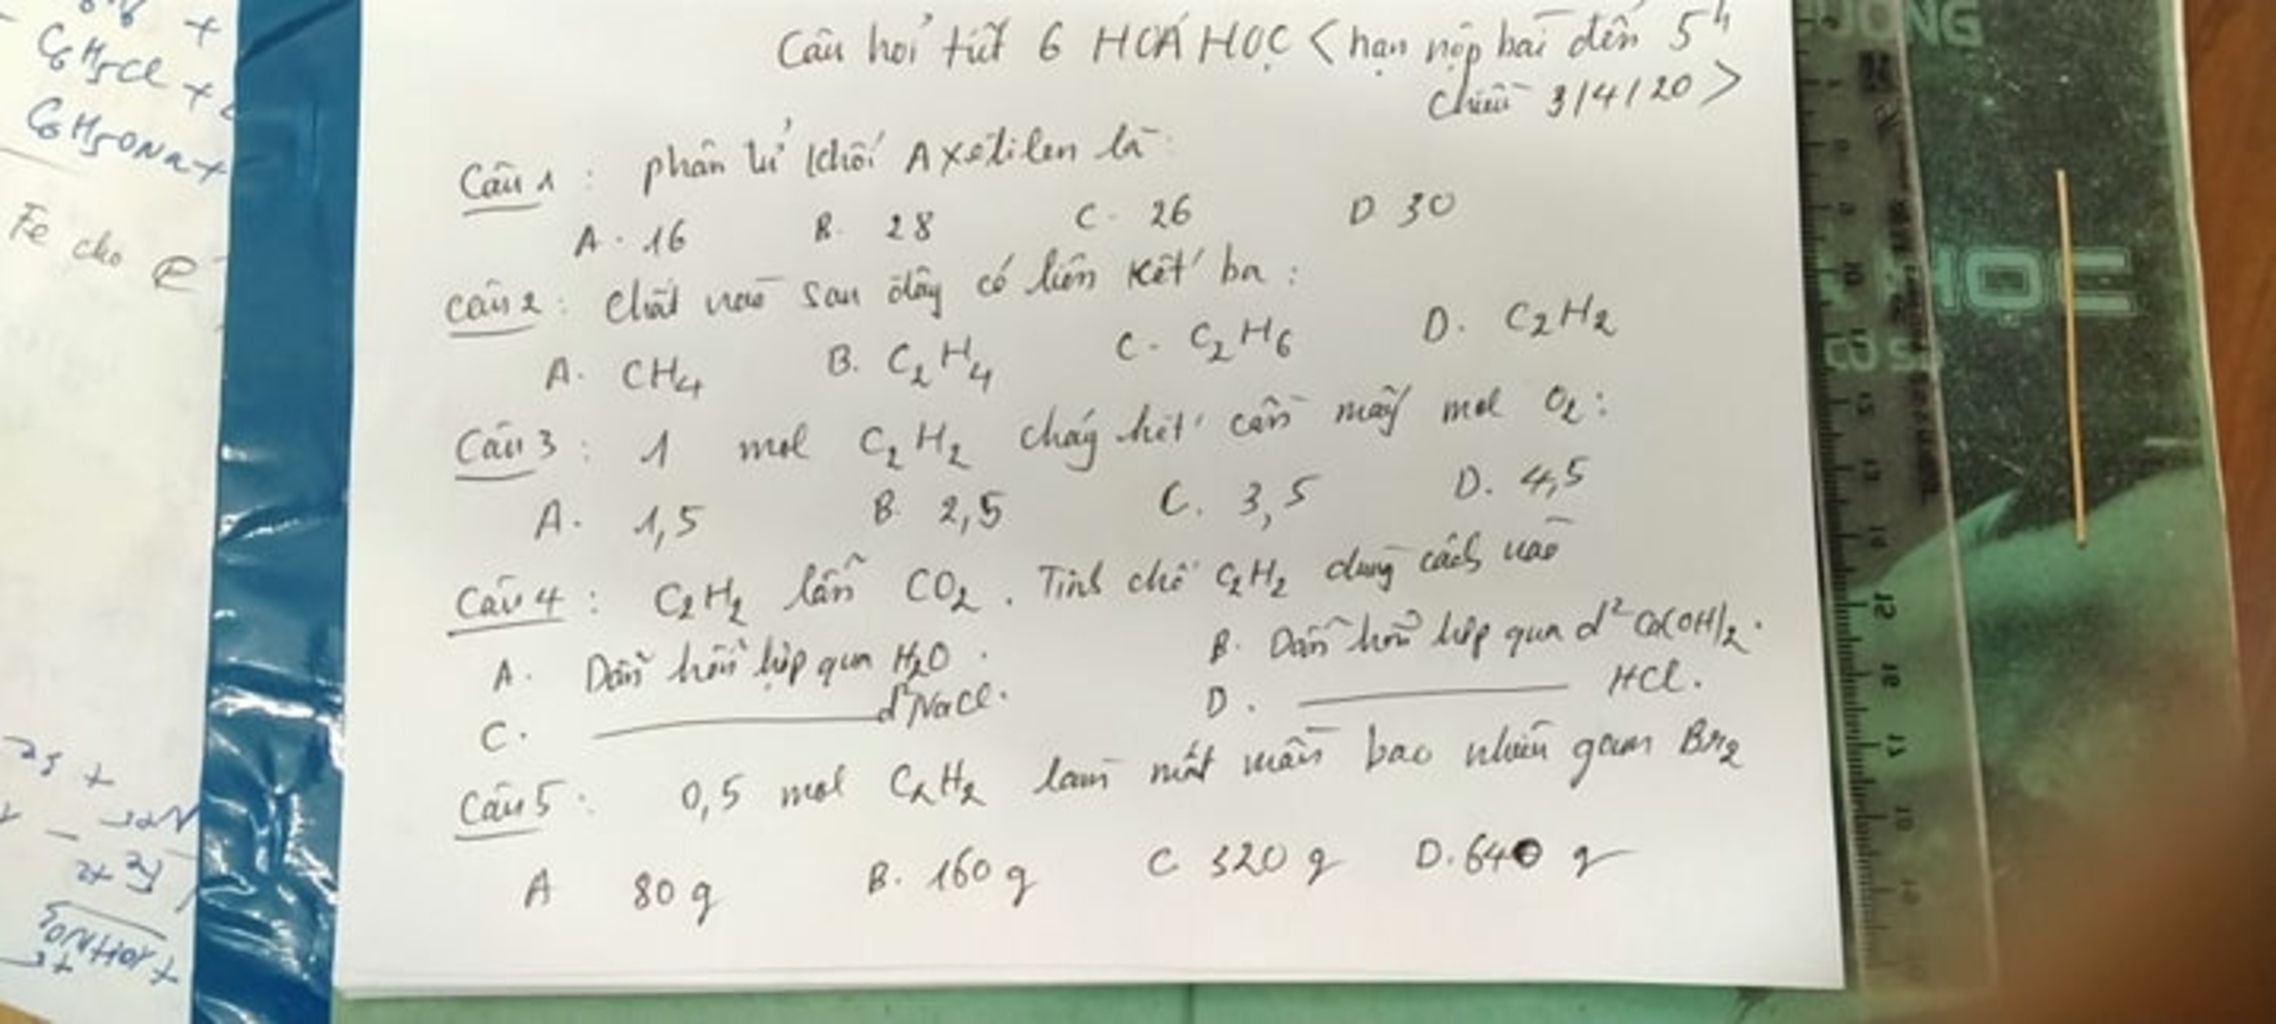 C6H5Cl +
C6H5ONa +
Fe cho e
Câu hỏi tiết 6 HOÁ HỌC < hạn nộp bài đến 5h
chiều 3/4/20 >
Câu 1 : phân tử khối Axetilen là
A. 16 B. 28 C. 26 D 30
Câu 2 : Chất nào sau đây có liên kết ba :
A. CH4 B. C2H4 C. C2H6 D. C2H2
Câu 3 : 1 mol C2H2 cháy hết cần mấy mol O2 :
A. 1,5 B. 2,5 C. 3,5 D. 4,5
Câu 4 : C2H2 lẫn CO2. Tinh chế C2H2 dùng cách nào
A. Dẫn hỗn hợp qua H2O. B. Dẫn hỗn hợp qua d2 Ca(OH)2.
C. ——— d2 NaCl. D. ——— HCl.
Câu 5 : 0,5 mol C2H2 làm mất màu bao nhiêu gam Br2
A 80 g B. 160 g C 320 g D. 640 g
HOC
CƠ S